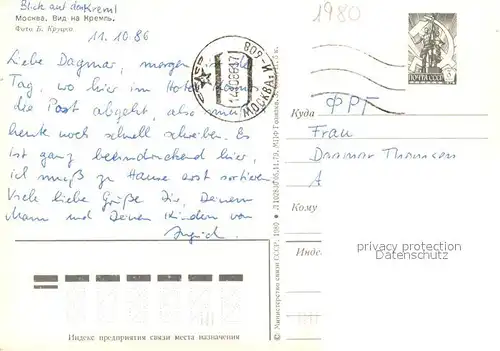 Blick auf den Kreml
Москва. Вид на Кремль.
Фото Б. Круцко.
11.10.86
1980
Liebe Dagmar, morgen ist der
Tag, wo hier im Hotel
die Post abgeht, also muß ich
heute noch schnell schreiben. Es
ist ganz beeindruckend hier,
ich muß zu Hause erst sortieren
Viele liebe Grüße Dir, Deinem
Mann und Deinen Kindern von
Ingrid.
МОСКВА
ПОЧТА СССР
Куда ФРГ
Frau
Dagmar Thomsen
A
Кому
Инде
privacy protection
www.ansichtskarten
Индекс предприятия связи места назначения
© Министерство связи СССР. 1980